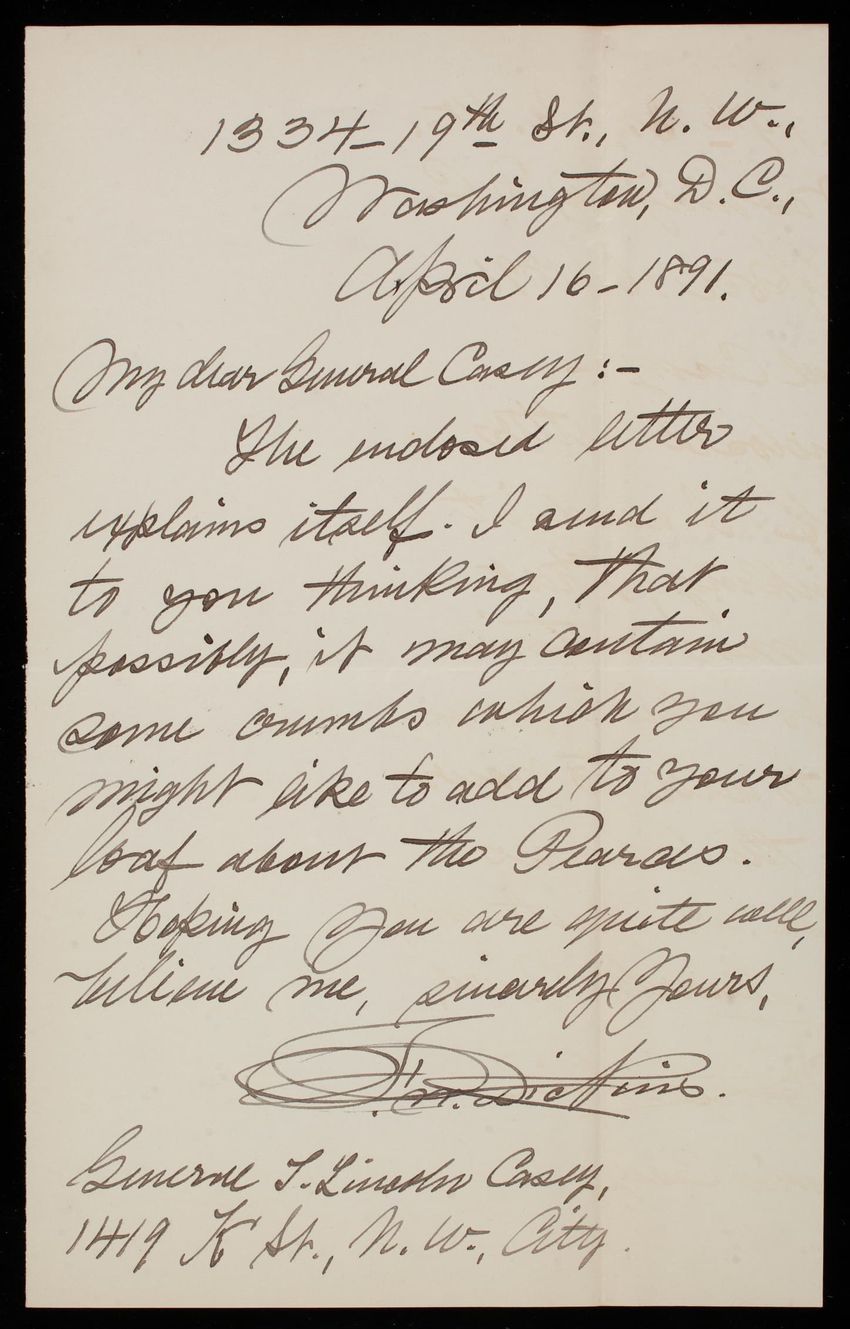 1334-19th St., N. W.,
Washington, D. C.,
April 16-1891.
My dear General Casey:-
The enclosed letter
explains itself. I send it
to you thinking, that
possibly, it may contain
some crumbs which you
might like to add to your
loaf about the Pearces.
Hoping you are quite well,
believe me, sincerely Yours,
F. W. Dickins.
General T. Lincoln Casey,
1419 K St., N. W., City.